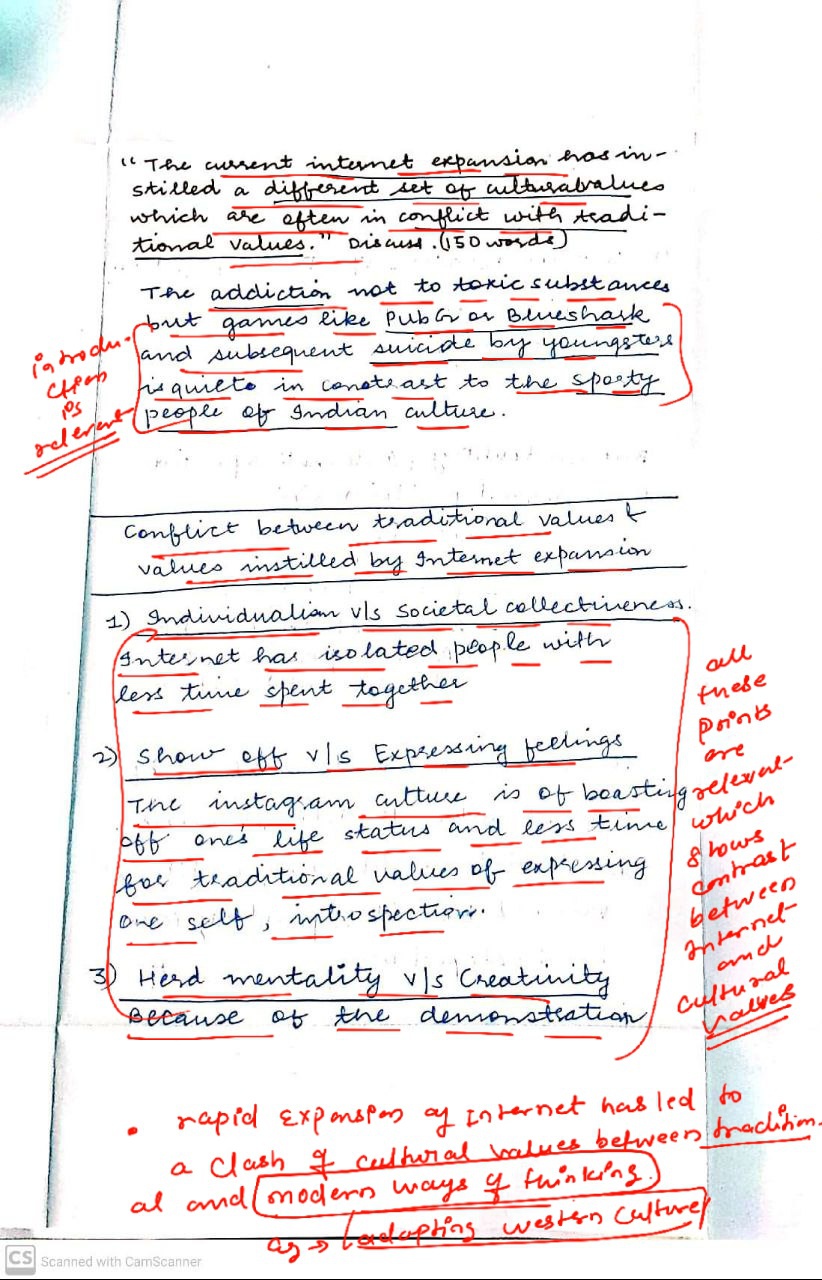 "The current internet expansion has in-
stilled a different set of cultural values
which are often in conflict with tradi-
tional values." Discuss. (150 words)
The addiction not to toxic substances
but games like PubG or Blueshark
and subsequent suicide by youngsters
is quiet in contrast to the sporty
people of Indian culture.
introdu-
ction
is
relevant
Conflict between traditional values &
values instilled by Internet expansion
1) Individualism v/s Societal collectiveness.
Internet has isolated people with
less time spent together
2) Show off v/s Expressing feelings
The instagram culture is of boasting
off one's life status and less time
for traditional values of expressing
one self, introspection.
3) Herd mentality v/s Creativity
Because of the demonstration
all
these
points
are
relevant
which
shows
contrast
between
Internet
and
cultural
values
• rapid expansion of internet has led to
a clash of cultural values between tradition-
al and modern ways of thinking.
as → adapting western culture
CS Scanned with CamScanner